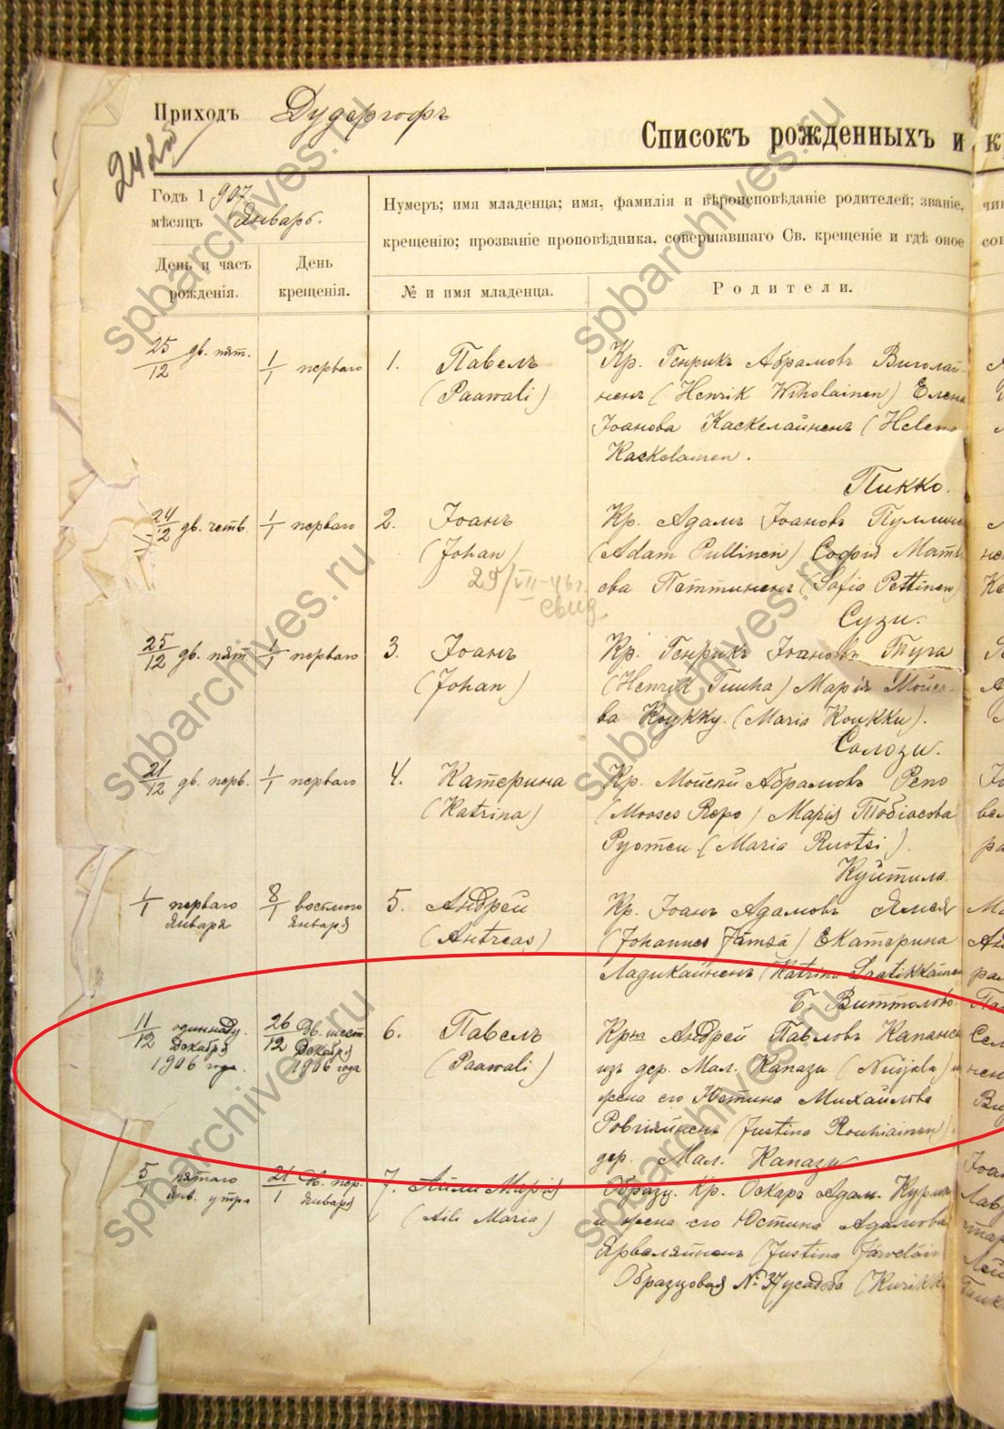 Приходъ Дудергофъ
2425
Списокъ рожденныхъ и к
Годъ 1907
мѣсяцъ Январь.
Нумеръ; имя младенца; имя, фамилія и вѣроисповѣданіе родителей; званіе,
крещенію; прозваніе проповѣдника, совершавшаго Св. крещеніе и гдѣ оное
День и часъ
рожденія.
День
крещенія.
№ и имя младенца.
Родители.
25/12 дв. пят. 1/1 перваго 1. Павелъ Кр. Генрикъ Абрамовъ Виголай-
(Paawali) ненъ (Henrik Wiholainen) Елена
Іоанова Каскелайненъ (Helena
Kaskelainen.
Пикко.
24/12 дв. четв. 1/1 перваго 2. Іоанъ Кр. Адамъ Іоановъ Пуллинен
(Johan) (Adam Pullinen) Софія Матв
29/VII-46г. ева Петтиненъ (Sofia Pettinen)
свид.
Сузи.
25/12 дв. пят. 1/1 перваго 3. Іоанъ Кр. Генрикъ Іоановъ Туга
(Johan) (Henrik Tuuha) Марія Мойсе-
ва Коукку. (Maria Koukku).
Солози.
21/12 дв. перв. 1/1 перваго 4. Катерина Кр. Мойсей Абрамовъ Репо
(Katrina) (Mooses Repo) Марія Тобіасова
Руотси (Maria Ruotsi).
Куйтила.
1/1 перваго 8/1 восьмого 5. Андрей Кр. Іоанъ Адамовъ Ямся
Января Января
(Antreas) (Johannes Jämsä) Екатерина
Ладикайненъ (Katrina Laatikkainen
Б. Виттолово.
11/12 одиннадц. 26/12 Дв. шест. 6. Павелъ Кр-нъ Андрей Павловъ Капанен
Декабря Декабря
1906 года. 1906 года (Paawali) изъ дер. Мал. Капази (Nuijala) и
жена его Юстина Михайлова
Ровгіяйненъ (Justina Rouhiainen)
дер. Мал. Капази
5/1 пятаго 21/1 Дв. пер. 7. Айли Марія Образц. Кр. Оскаръ Адам. Курик
утра Января
(Aili Maria) и жена его Юстина Адамова
Ярвеляйненъ (Justina Järveläin
Образцовая № 37 усадьба (Kurikk
spbarchives.ru
spbarchives.ru
spbarchives.ru
spbarchives.ru
spbarchives.ru
spbarchives.ru